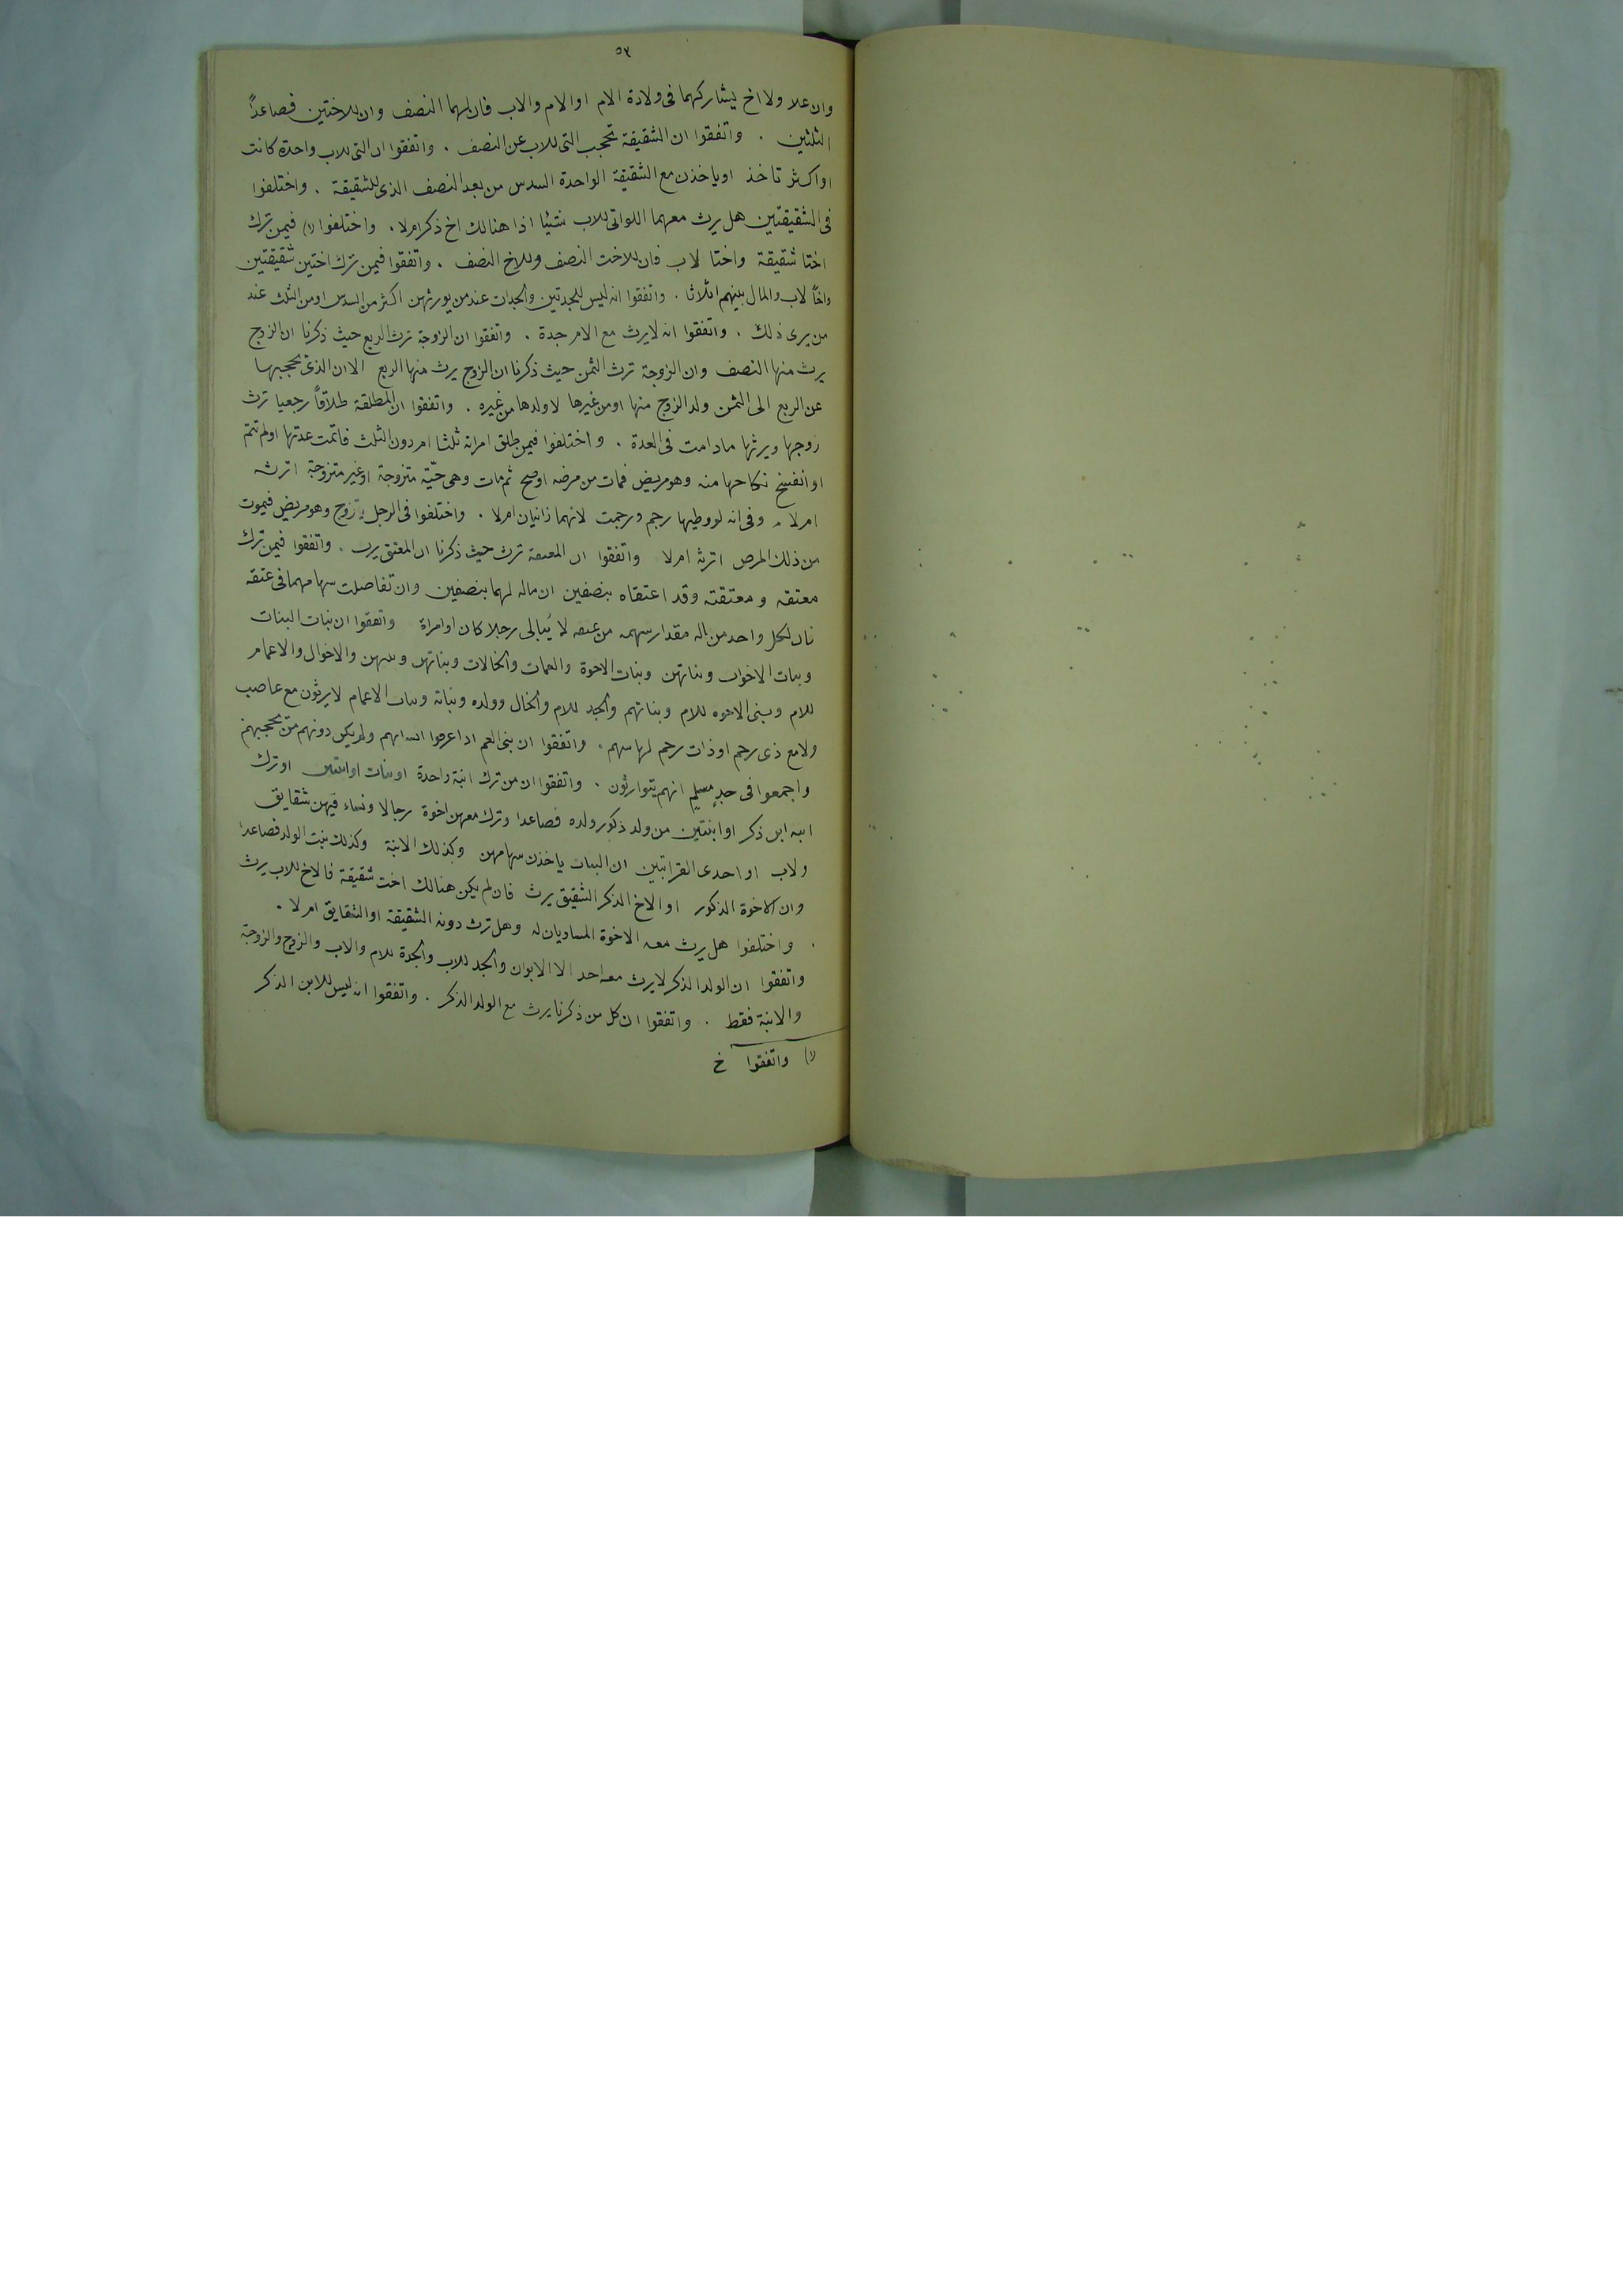 ٥٢
وان علا ولا اخ يشاركهما فى ولادة الام او الام والاب فان لهما النصف وان للاختين فصاعداً
الثلثين . واتفقوا ان الشقيقة تحجب التى للاب عن النصف . واتفقوا ان التى للاب واحدة كانت
او اكثر تاخذ او ياخذن مع الشقيقة الواحدة السدس من بعد النصف الذى للشقيقة . واختلفوا
فى الشقيقتين هل يرث معهما اللواتى للاب شئيا اذا هنالك اخ ذكر ام لا . واختلفوا (١) فيمن ترك
اختا شقيقة واختا لاب فان للاخت النصف وللاخ النصف . واتفقوا فيمن ترك اختين شقيقتين
واخاً لاب والمال بينهم اثلاثا . واتفقوا انه ليس للجدتين والجدات عند من يورثهن اكثر من السدس او من الثلث عند
من يرى ذلك . واتفقوا انه لا يرث مع الام جدة . واتفقوا ان الزوجة ترث الربع حيث ذكرنا ان الزوج
يرث منها النصف وان الزوجة ترث الثمن حيث ذكرنا ان الزوج يرث منها الربع الا ان الذى يحجبها
عن الربع الى الثمن ولد الزوج منها او من غيرها لا ولدها من غيره . واتفقوا ان المطلقة طلاقاً رجعيا ترث
زوجها ويرثها ما دامت فى العدة . واختلفوا فيمن طلق امراته ثلثا ام دون الثلث فاتمت عدتها او لم تتم
او انفسخ نكاحها منه وهو مريض فمات من مرضه او صح ثم مات وهى حيّة متزوجة او غير متزوجة اترثه
ام لا . وفى انه لو وطيها رجم ورجمت لانهما زانيان ام لا . واختلفوا فى الرجل يتزوج وهو مريض فيموت
من ذلك المرض اترثه ام لا واتفقوا ان المعتقة ترث حيث ذكرنا ان المعتق يرث . واتفقوا فيمن ترك
معتقه ومعتقته وقد اعتقاه بنصفين ان ماله لهما بنصفين وان تفاصلت سهامهما فى عتقه
فان لكل واحد من ماله مقدار سهمه من عتقه لا يُبالى رجلا كان او امراة واتفقوا ان بنات البنات
وبنات الاخوات وبناتهن وبنات الاخوة والعمات والخالات وبناتهن وبنيهن والاخوال والاعمام
للام وبنى الاخوه للام وبناتهم والجد للام والخال وولده وبناته وبنات الاعمام لا يرثون مع عاصب
ولا مع ذى رحم او ذات رحم لها سهم . واتفقوا ان بنى العم اذا عرفوا انسابهم ولم يكن دونهم من يحجبهم
واجمعوا فى جدٍ مسلمٍ انهم يتوارثون . واتفقوا ان من ترك ابنة واحدة او بنات او ابنتين او ترك
ابنه ابن ذكر او ابنتين من ولد ذكور ولده فصاعدا وترك معهن اخوة رجالا ونساء فيهن شقايق
ولاب او احدى القرابتين ان البنات ياخذن سهامهن وكذلك الابنة وكذلك بنت الولد فصاعدا
وان الاخوة الذكور او الاخ الذكر الشقيق يرث فان لم يكن هنالك اخت شقيقة فالاخ للاب يرث
. واختلفوا هل يرث معه الاخوة المساويان له وهل ترث دونه الشقيقة او الشقايق ام لا .
واتفقوا ان الولد الذكر لا يرث معه احد الا الابوان والجد للاب والجدة للام والاب والزوج والزوجة
والابنة فقط . واتفقوا ان كل من ذكرنا يرث مع الولد الذكر . واتفقوا انه ليس للابن الذكر
(١) واتفقوا خ